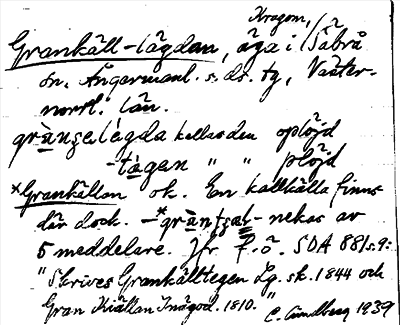 Kragom,
Grankäll-tägdan, äga i Säbrå
sn, Ångermanl. s. ds. tg, Väster-
norrl. län.
gränsel kallas den oplöjd
-tägen " " plöjd
*Grankällan ok. En kallkälla finns
där dock. -*gräntsal- nekas av
5 meddelare. Jfr F.ö. SDA 881 s.9:
"Skrives Grankälltegen Lg. sk. 1844 och
Gran Kiällan Inägod. 1810."
C. Lundberg 1939